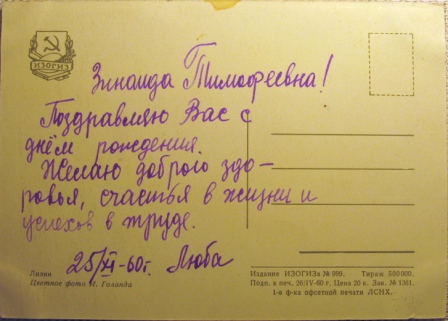 ИЗОГИЗ
Зинаида Тимофеевна!
Поздравляю Вас с
днём рождения.
Желаю доброго здо-
ровья, счастья в жизни и
успехов в труде.
25/XI-60г. Люба
Лилии
Цветное фото И. Голанда
Издание ИЗОГИЗа № 999. Тираж 500 000.
Подп. к печ. 26/IV-60 г. Цена 20 к. Зак. № 1361.
1-я ф-ка офсетной печати ЛСНХ.